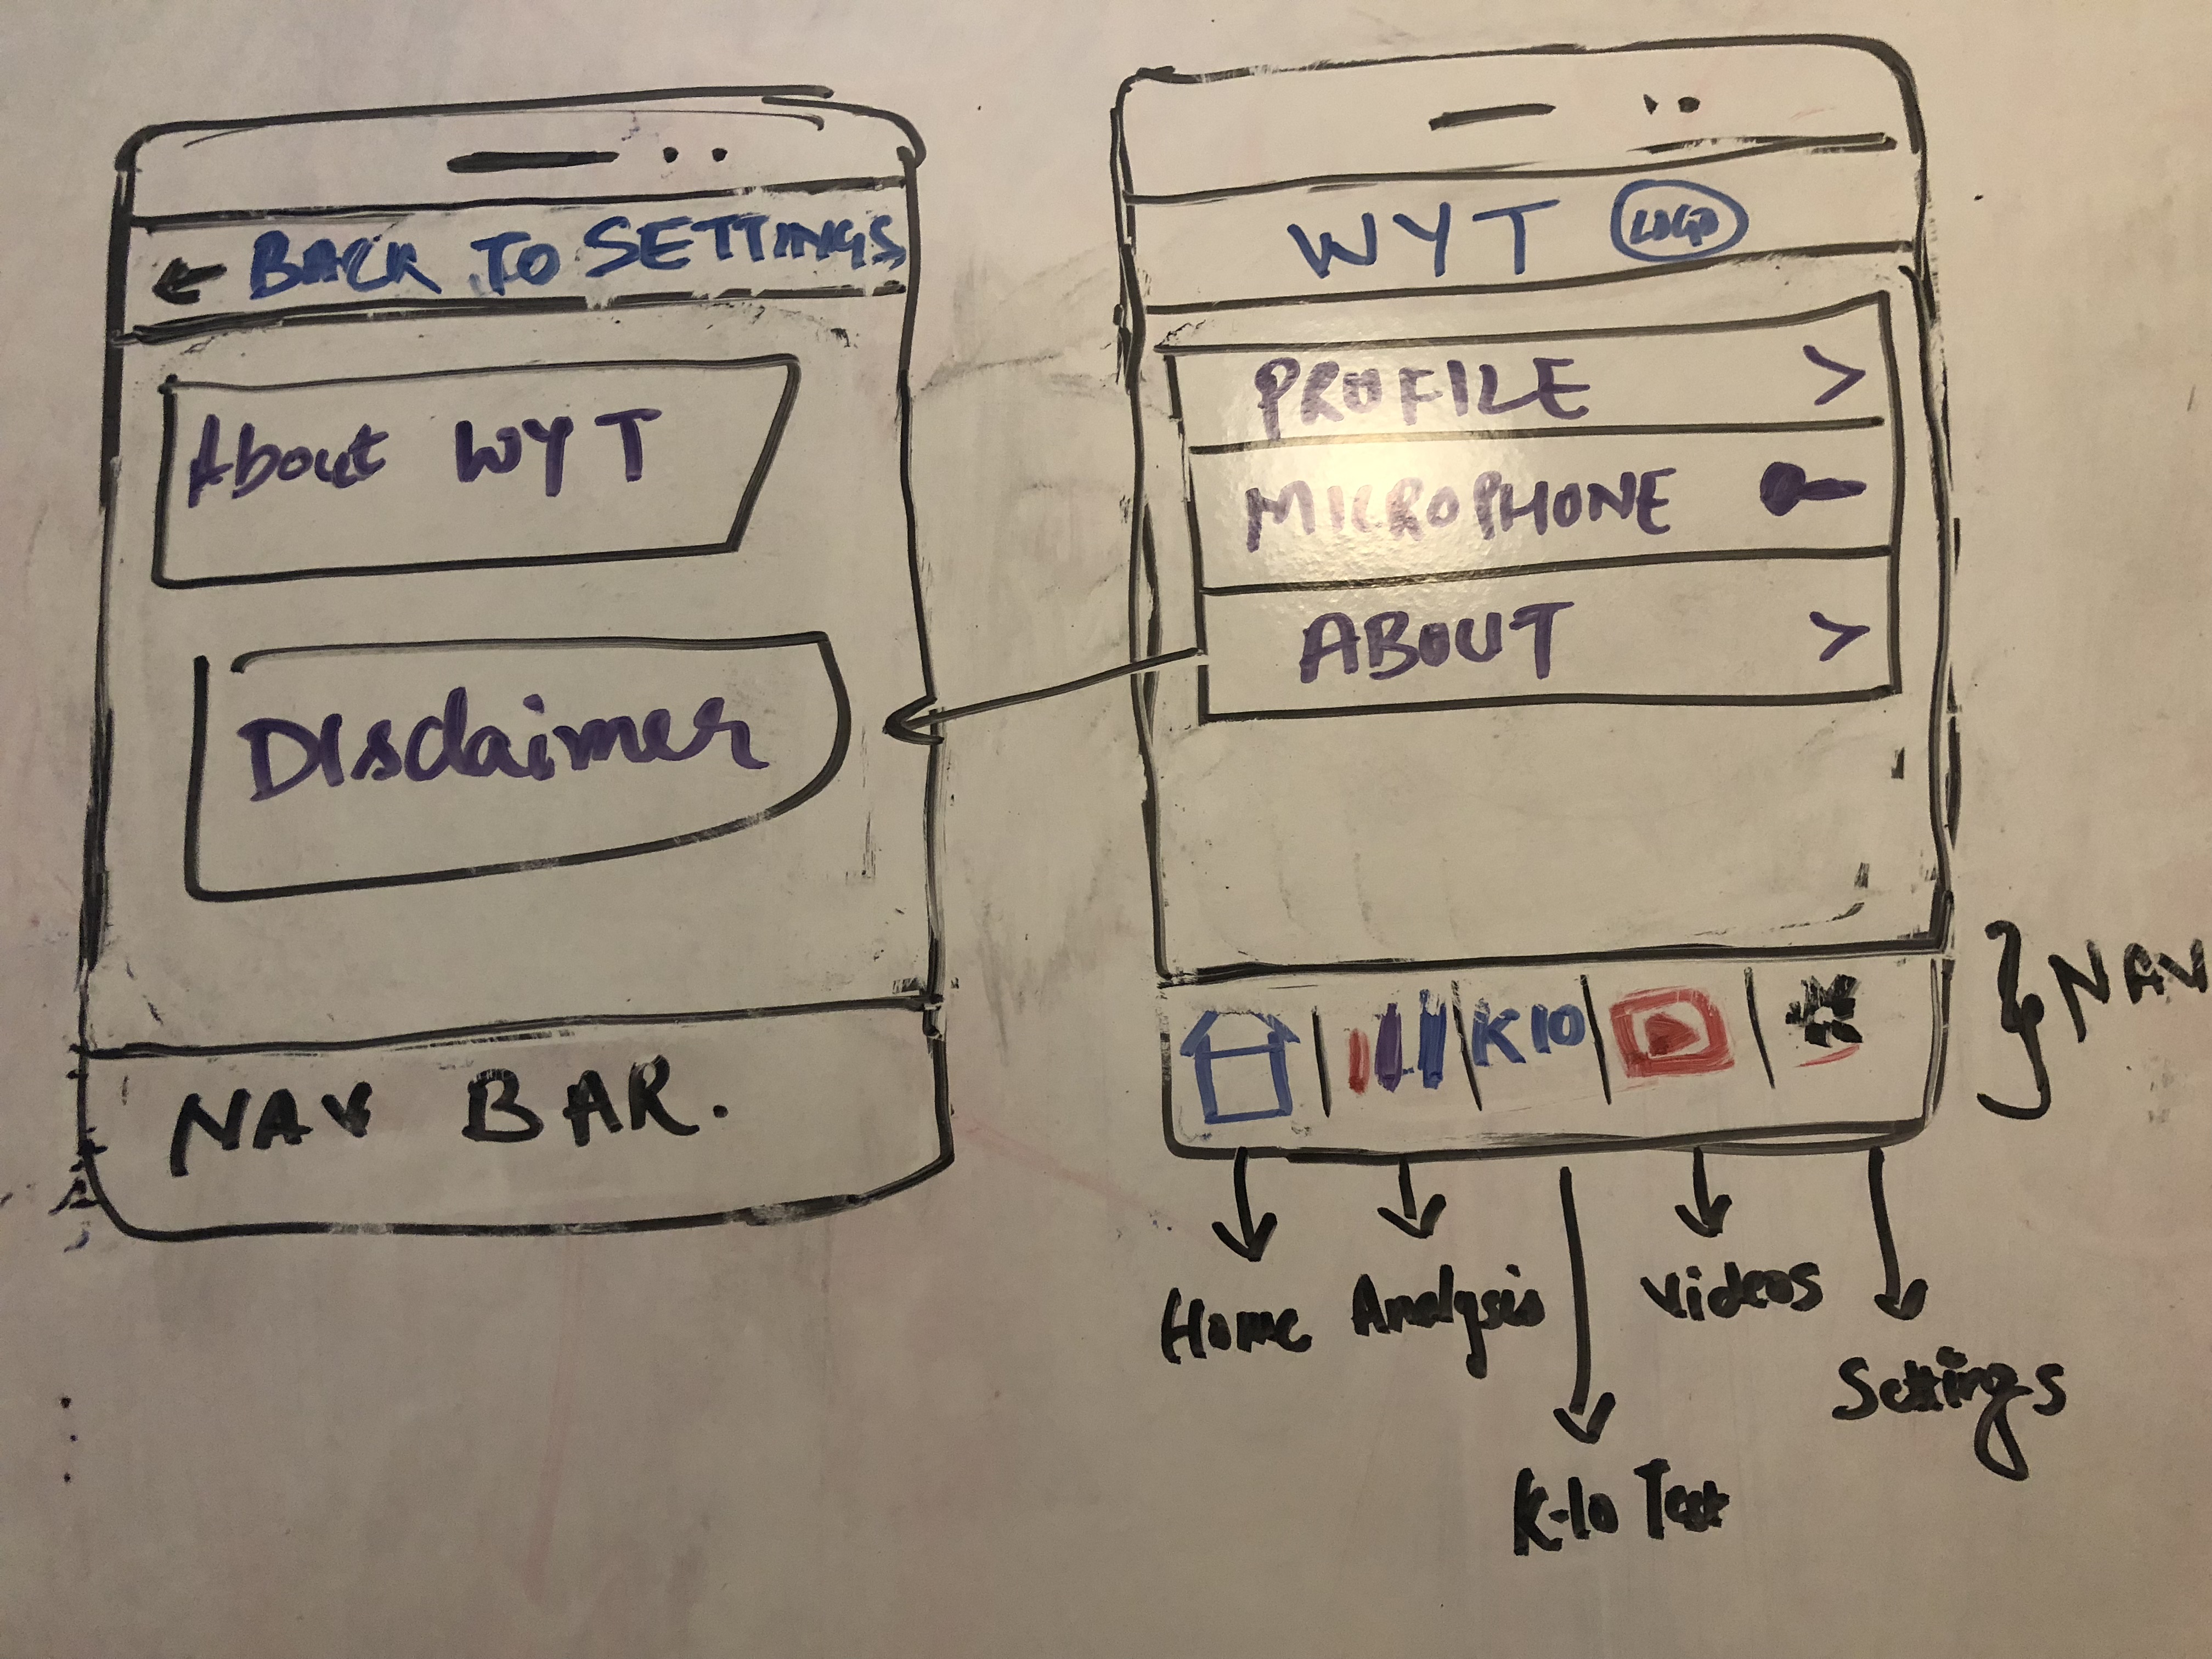 BACK TO SETTINGS
About WYT
Disclaimer
NAV BAR.
WYT LOGO
PROFILE >
MICROPHONE
ABOUT >
K10
NAV
Home Analysis Videos
Settings
K-10 Test